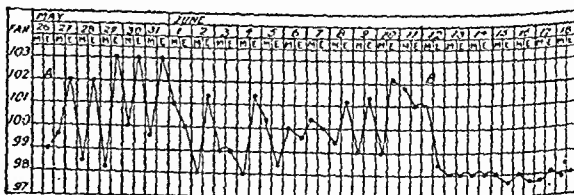 MAY JUNE
FAH 26 27 28 29 30 31 1 2 3 4 5 6 7 8 9 10 11 12 13 14 15 16 17 18
M E M E M E M E M E M E M E M E M E M E M E M E M E M E M E M E M E M E M E M E M E M E M E M E
103
102 A A
101
100
99
98
97